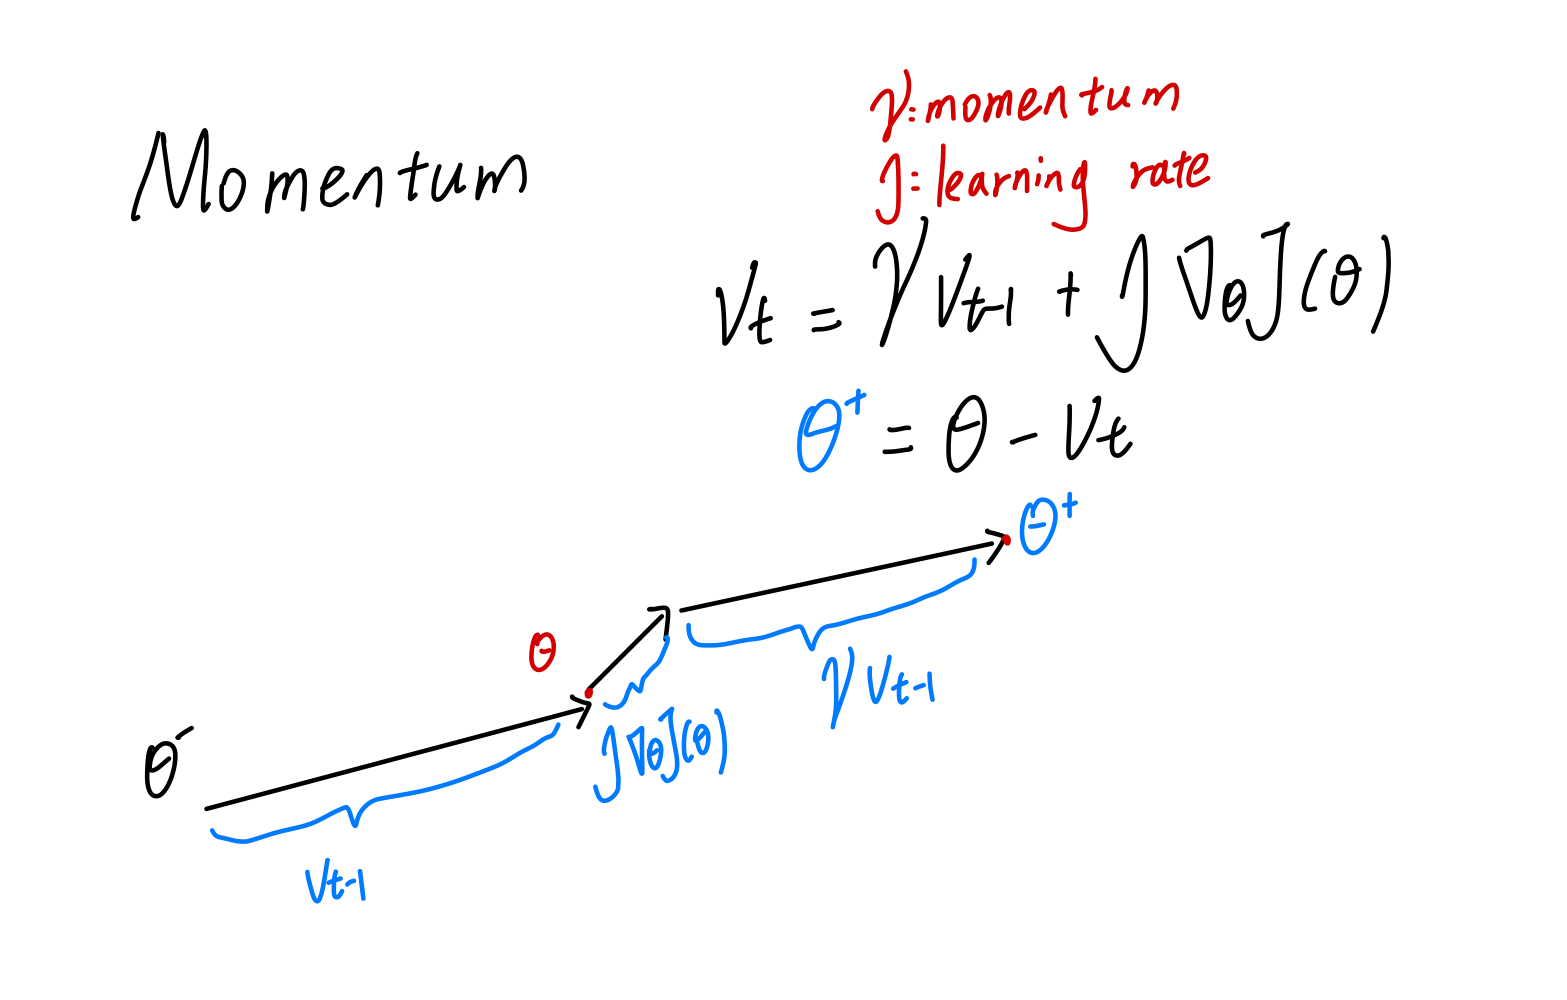 Momentum
γ: momentum
η: learning rate
Vt = γ Vt-1 + η ∇θJ(θ)
θ⁺ = θ - Vt
θ⁺
θ
γ Vt-1
η ∇θJ(θ)
θ⁻
Vt-1